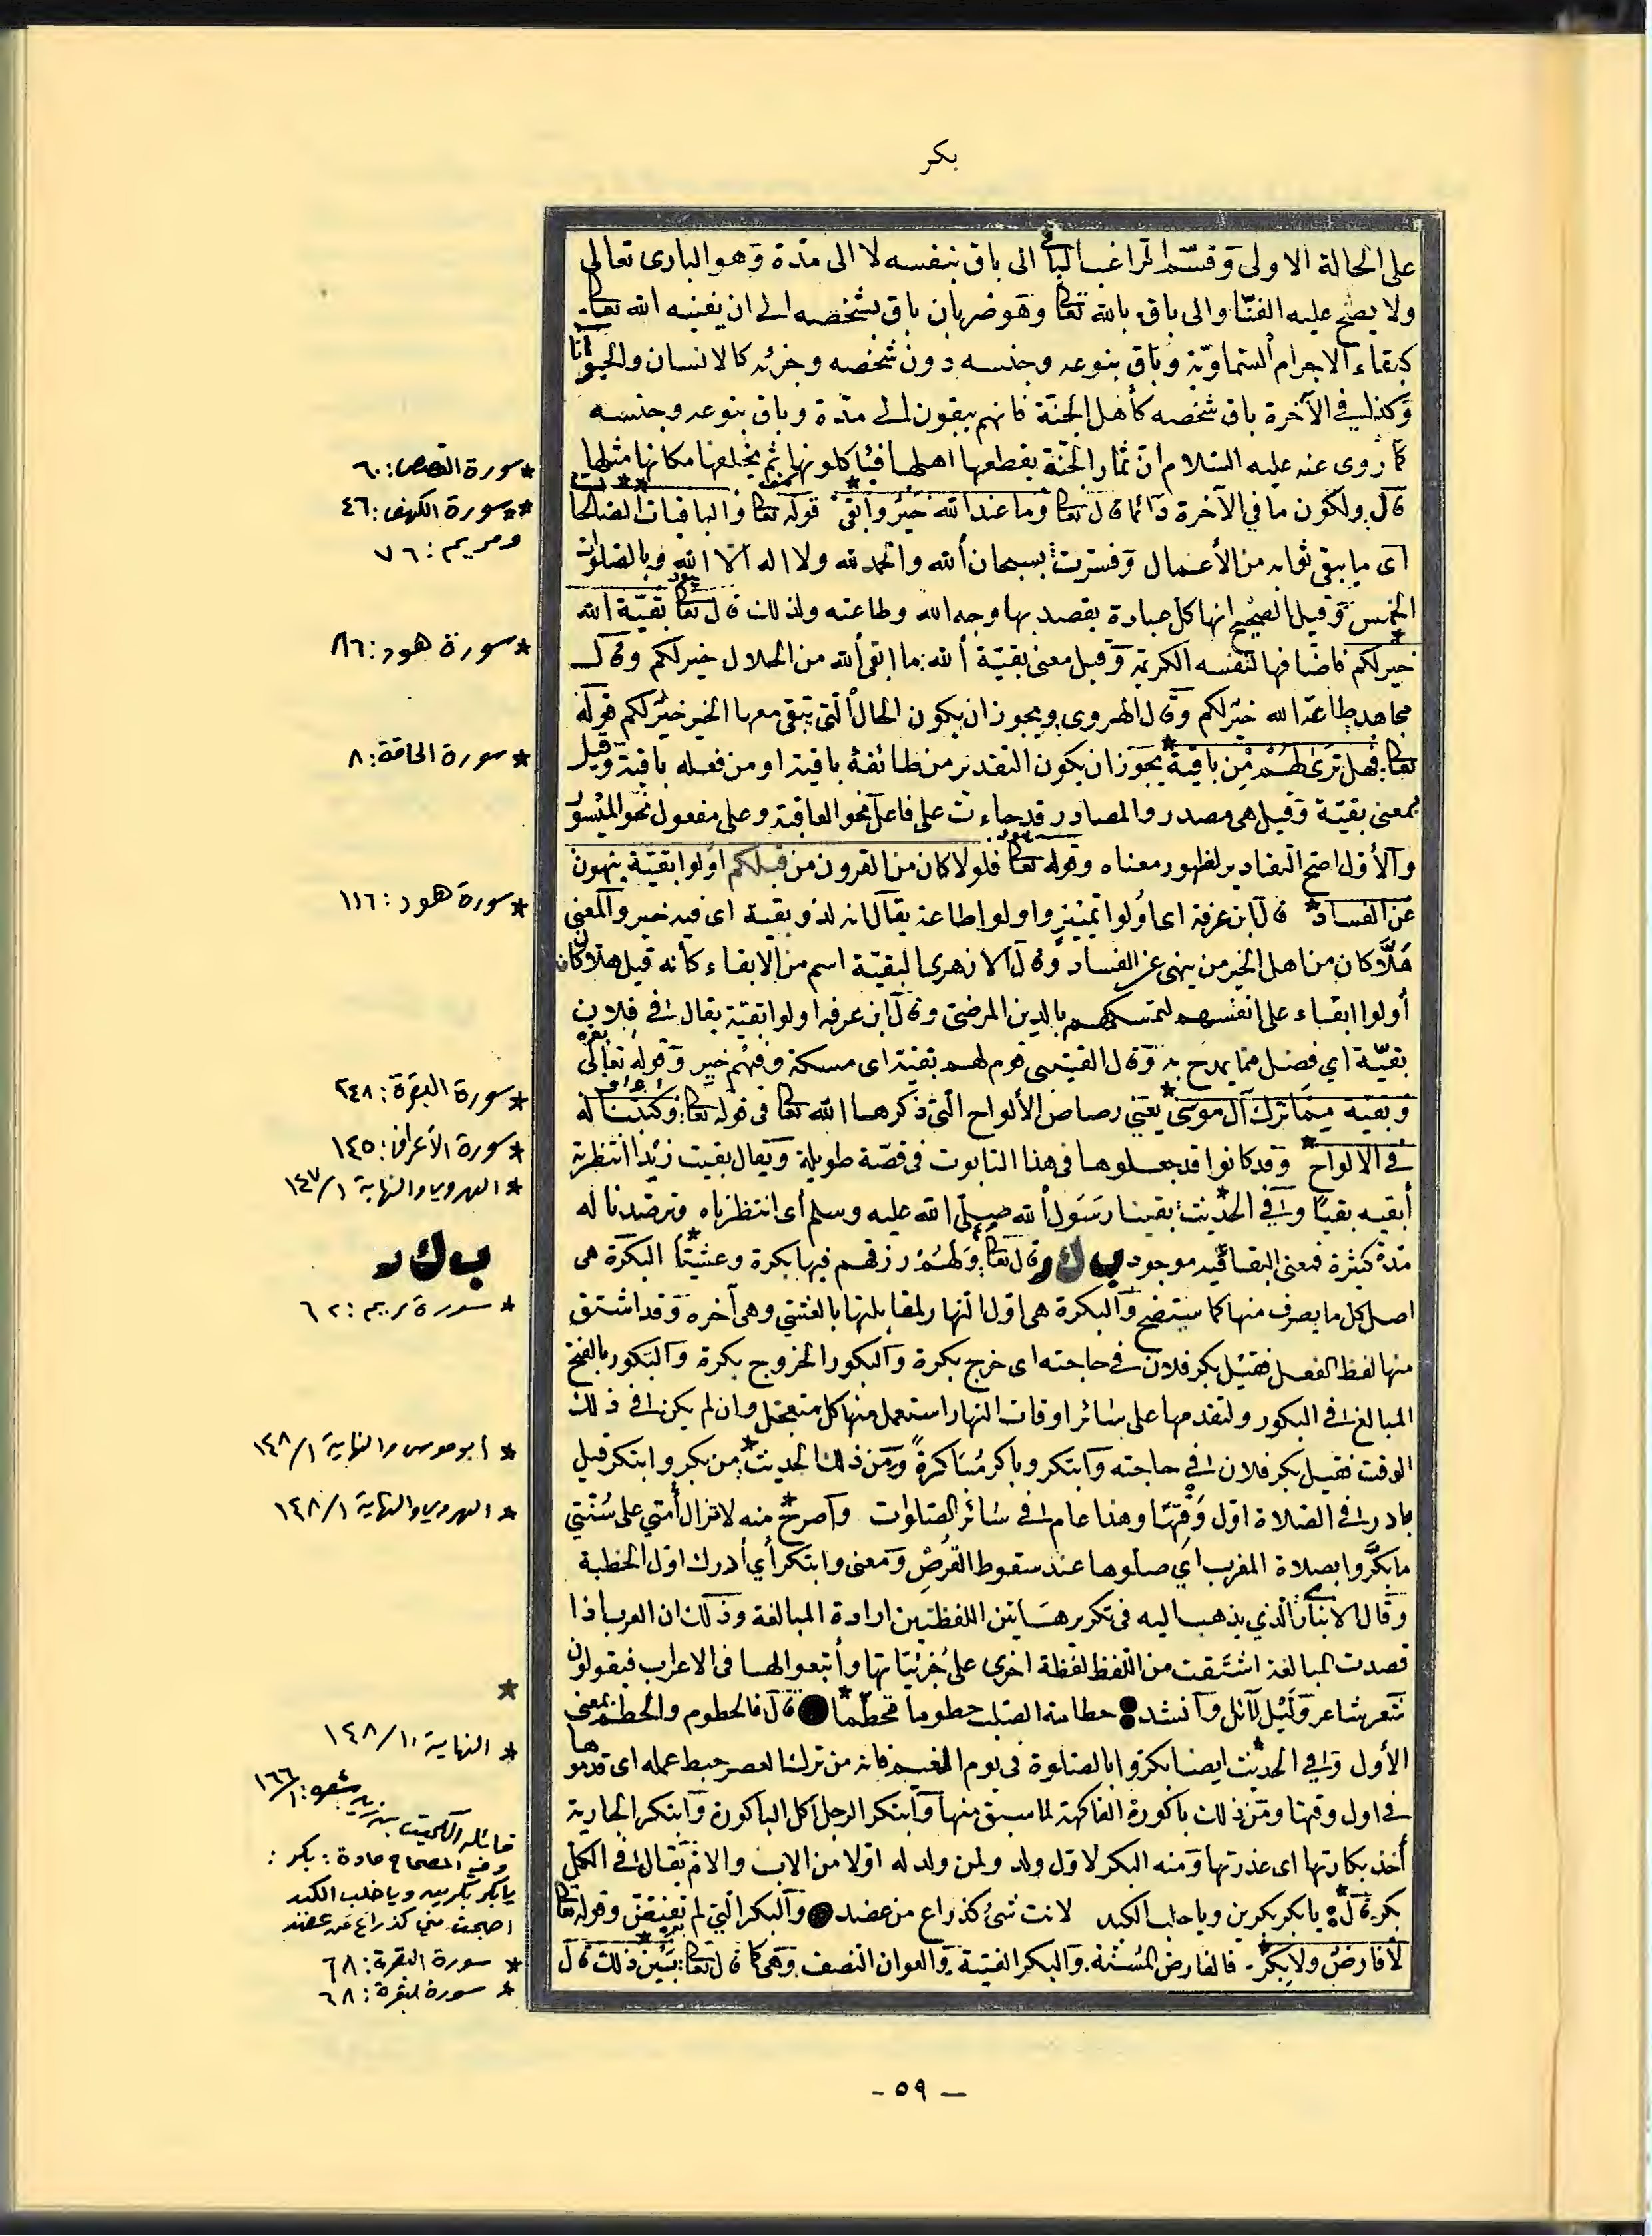 بكر
على الحالة الاولى وقسم الراغب الباقي الى باق بنفسه لا الى مدة وهو البارى تعالى
ولا يصح عليه الفناء والى باق بالله تعالى وهو ضربان باق بشخصه الى ان يفنيه الله تعالى
كبقاء الاجرام السماوية وباق بنوعه وجنسه دون شخصه وجزئه كالانسان والحيوانات
وكذلك في الآخرة باق شخصه كأهل الجنة فانهم يبقون لا الى مدة وباق بنوعه وجنسه
كما روى عنه عليه السلام ان ثمار الجنة يقطعها اهلها فيأكلونها ثم يخلفها مكانها مثلها
قال ولكون ما في الآخرة دائما قال تعالى وما عند الله خير وأبقى* قوله تعالى والباقيات الصالحات**
اى ما يبقى ثوابه من الأعمال وفسرت بسبحان الله والحمد لله ولا اله الا الله وبالصلوات
الخمس وقيل الصحيح انها كل عبادة يقصد بها وجه الله وطاعته ولذلك قال تعالى بقية الله
خير لكم* فاضافها لنفسه الكريمة وقيل معنى بقية الله: ما ابقى الله من الحلال خير لكم وقال
مجاهد طاعة الله خير لكم وقال الهروى ويجوز ان يكون الحال التى تبقى معها الخير خير لكم قوله
تعالى فهل ترى لهم من باقية* يجوز ان يكون التقدير من طائفة باقية او من فعله باقية وقيل
بمعنى بقية وقيل هى مصدر والمصادر قد جاءت على فاعل نحو العاقبة وعلى مفعول نحو الميسور
والأول اصح التقادير لظهور معناه وقوله تعالى فلولا كان من القرون من قبلكم اولوا بقية ينهون
عن الفساد* قال ابن عرفة اى اولوا تمييز واولوا طاعة يقال انه لذو بقية اى فيه خير والمعنى
هلا كان من اهل الخير من ينهى عن الفساد وقال الازهرى البقية اسم من الابقاء كأنه قيل هلا كان
أولوا ابقاء على انفسهم لتمسكهم بالدين المرضى وقال ابن عرفه اولوا بقية يقال في فلان
بقية اي فضل مما يمدح به وقال القتيبى قوم لهم بقية اى مسكة وفيهم خير وقوله تعالى
وبقية مما ترك آل موسى* يعني رصاص الألواح التى ذكرها الله تعالى فى قوله تعالى: وكتبنا له
في الالواح* وقد كانوا قد جعلوها فى هذا التابوت فى قصة طويلة ويقال بقيت زيدا انتظرته
أبقيه بقيا وفي الحديث: بقينا رسول الله صلى الله عليه وسلم أى انتظرناه وترصدنا له
مدة كثيرة فمعنى البقا فيه موجود ب ك ر قال تعالى ولهم رزقهم فيها بكرة وعشيا* البكرة هى
اصل كل ما يصرف منها كما ستضح والبكرة هى اول النهار لمقابلتها بالعشي وهى آخره وقد اشتق
منها لفظ الفعل فقيل بكر فلان في حاجته اى خرج بكرة والبكور الخروج بكرة والبكور بالفتح
المبالغ في البكور ولتقدمها على سائر اوقات النهار استعمل منها كل متعجل وان لم يكن في ذلك
الوقت فقيل بكر فلان في حاجته وابتكر وباكر مباكرة ومن ذلك الحديث* من بكر وابتكر قيل
بادر في الصلاة اول وقتها وهذا عام في سائر الصلوات وأصرح* منه لا تزال أمتي على سنتي
ما بكروا بصلاة المغرب اي صلوها عند سقوط القرص ومعنى وابتكر أي أدرك اول الخطبة
وقال الانباري الذي يذهب اليه فى تكرير هاتين اللفظتين ارادة المبالغة وذلك ان العرب اذا
قصدت المبالغة اشتقت من اللفظ لفظة اخرى على جزئياتها وأتبعوالها فى الاعراب فيقولون
شعر شاعر وليل لائل وأنشد: حطامة الصلب حطوما محطما* قال فالحطوم والمحطم بمعنى
الأول وفي الحديث* ايضا بكروا بالصلوة فى يوم الغيم فانه من ترك العصر حبط عمله اى قدموها
في اول وقتها ومن ذلك باكورة الفاكهة لما سبق منها وابتكر الرجل اكل الباكورة وابتكر الجارية
أخذ بكارتها اى عذرتها ومنه البكر لاول ولد ولمن ولد له اولا من الاب والام يقال في الكل
بكر قال: يا بكر بكرين ويا خلب الكبد لانت شئ كذراع من عضد والبكر التي لم تفتض وقوله تعالى
لا فارض ولا بكر* فالفارض المسنة والبكر الفتية والعوان النصف وهى كما قال تعالى بين ذلك* قال
* سورة القصص: ٦٠
** سورة الكهف: ٤٦
ومريم: ٧٦
* سورة هود: ٨٦
* سورة الحاقة: ٨
* سورة هود: ١١٦
* سورة البقرة: ٢٤٨
* سورة الأعراف: ١٤٥
* الهروي والنهاية ١/١٤٧
ب ك ر
* سورة مريم: ٦٢
* أبو موسى والنهاية ١/١٤٨
* الهروي والنهاية ١/١٤٨
*
* النهاية ١/١٤٨
قائله الكميت بن زيد شعره: ١/١٦٦
وفي الصحاح مادة: بكر:
يا بكر بكرين ويا خلب الكبد
اصبحت مني كذراع من عضد
* سورة البقرة: ٦٨
* سورة البقرة: ٦٨
- ٥٩ -